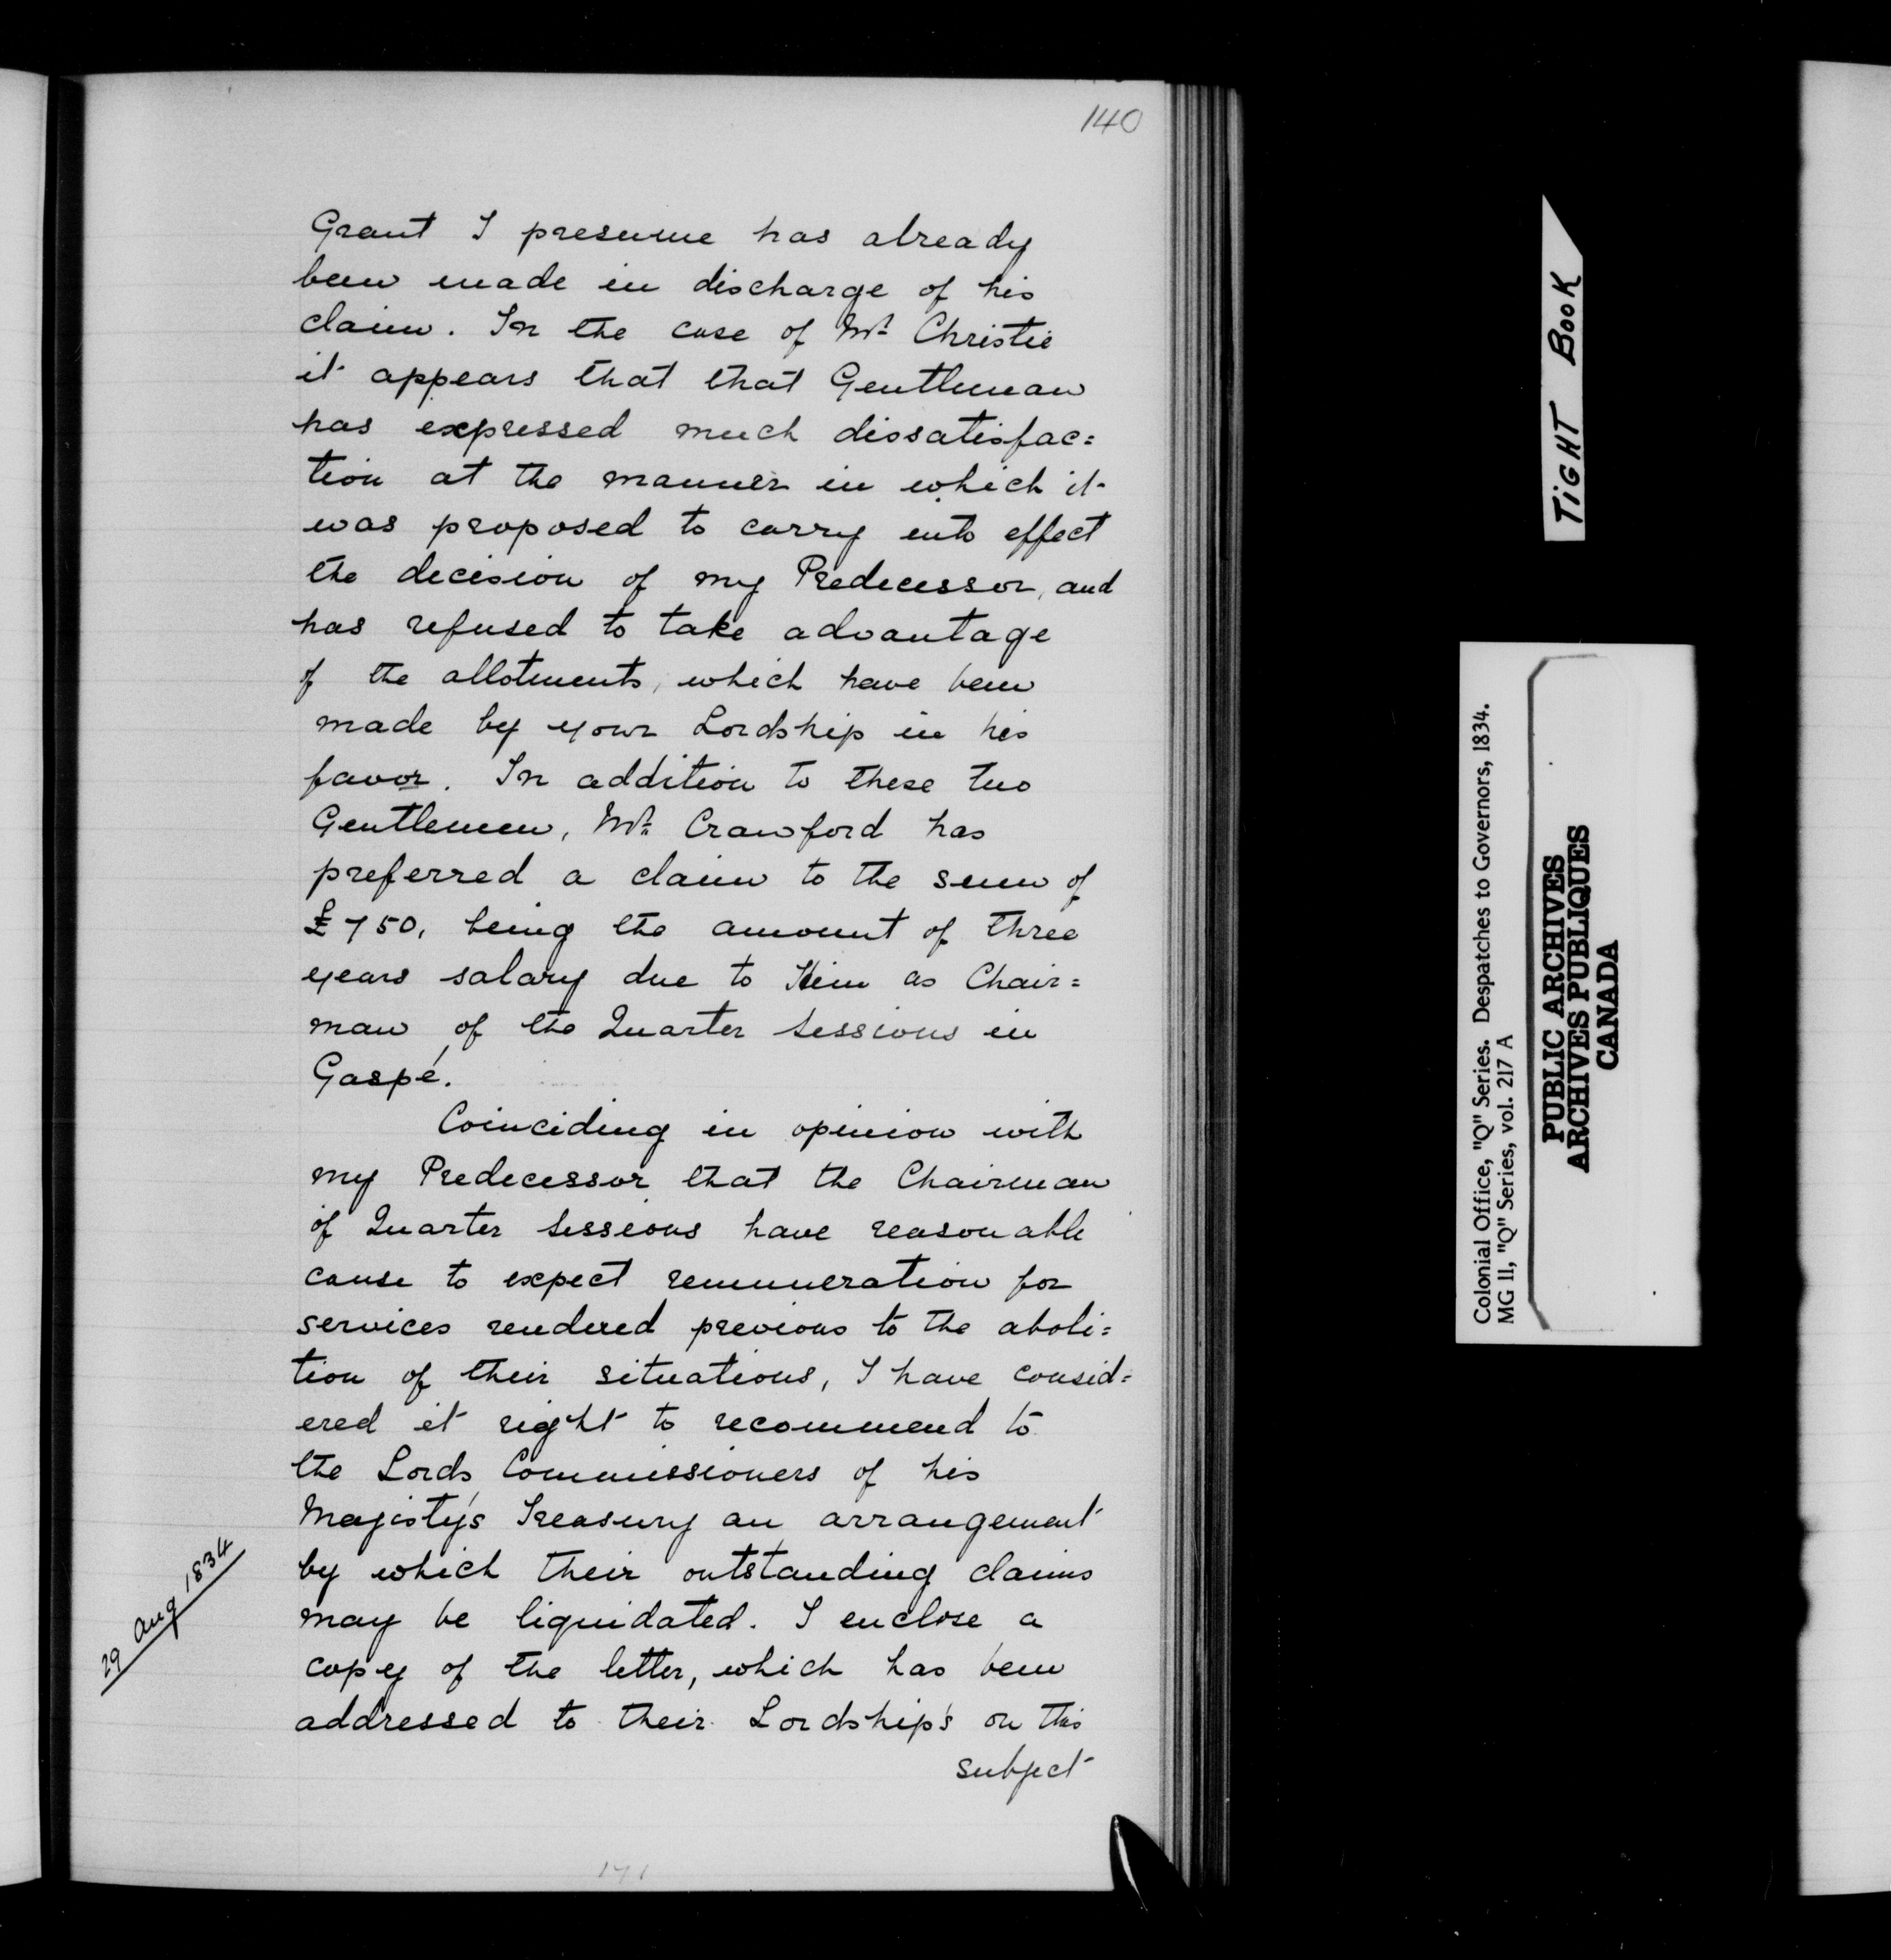 140
Grant I presume has already
been made in discharge of his
claim. In the case of Mr. Christie
it appears that that Gentleman
has expressed much dissatisfac=
tion at the manner in which it
was proposed to carry into effect
the decision of my Predecessor, and
has refused to take advantage
of the allotments, which have been
made by your Lordship in his
favor. In addition to these two
Gentlemen, Mr. Crawford has
preferred a claim to the sum of
£750, being the amount of three
years salary due to Him as Chair=
man of the Quarter Sessions in
Gaspé.
Coinciding in opinion with
my Predecessor that the Chairman
of Quarter Sessions have reasonable
cause to expect remuneration for
services rendered previous to the aboli=
tion of their situations, I have consid=
ered it right to recommend to
the Lords Commissioners of his
Majisty's Treasury an arrangement
by which their outstanding claims
may be liquidated. I enclose a
copy of the letter, which has been
addressed to their Lordship's on this
subject
29 Aug 1834
171
TiGHT BooK
Colonial Office, "Q" Series. Despatches to Governors, 1834.
MG 11, "Q" Series, vol. 217 A
PUBLIC ARCHIVES
ARCHIVES PUBLIQUES
CANADA